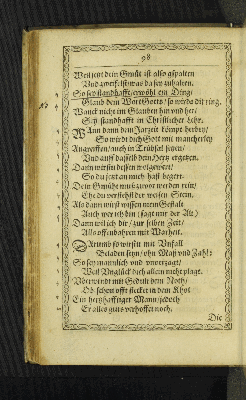 98
Weil jetzt dein Gmüt ist also gspalten
Und zweifelst was da sey zuhalten.
So sey standhafft / erwöhl ein Ding /
Glaub dem Wort Gotts / so wirds dir ring.
Wanck nicht im Glauben hin und her /
Sey standhafft in Christlicher Lehr.
WAnn dann dein Jarzeit kömpt herbey /
So wirdt dich Gott mit mancherley
Angreiffen / auch in Trübsal setzen /
Und auff dasselb dein Hertz ergetzen.
Dann wirstu dessen wolgewert /
So du jetzt an mich hast begert.
Dein Gemüthe muß zuvor werden rein /
Ehe du verstehst der weisen Stein.
Als dann wirst wissen mein Gestalt
Auch wer ich bin / sagt mir der Alt)
Dann will ich dir / zur selben Zeit /
Als offenbahren mit Warheit.
DArumb so wirstu mit Unfall
Beladen seyn / ohn Maß und Zahl:
So sey mannlich und unverzagt /
Weil Unglück dich allein nicht plagt.
Uberwindt mit Gedult dein Noth /
Ob schon offt stecket in dem Khot
Ein hertzhafftiger Mann / jedoch
Er alles guts verhoffet noch.
Die